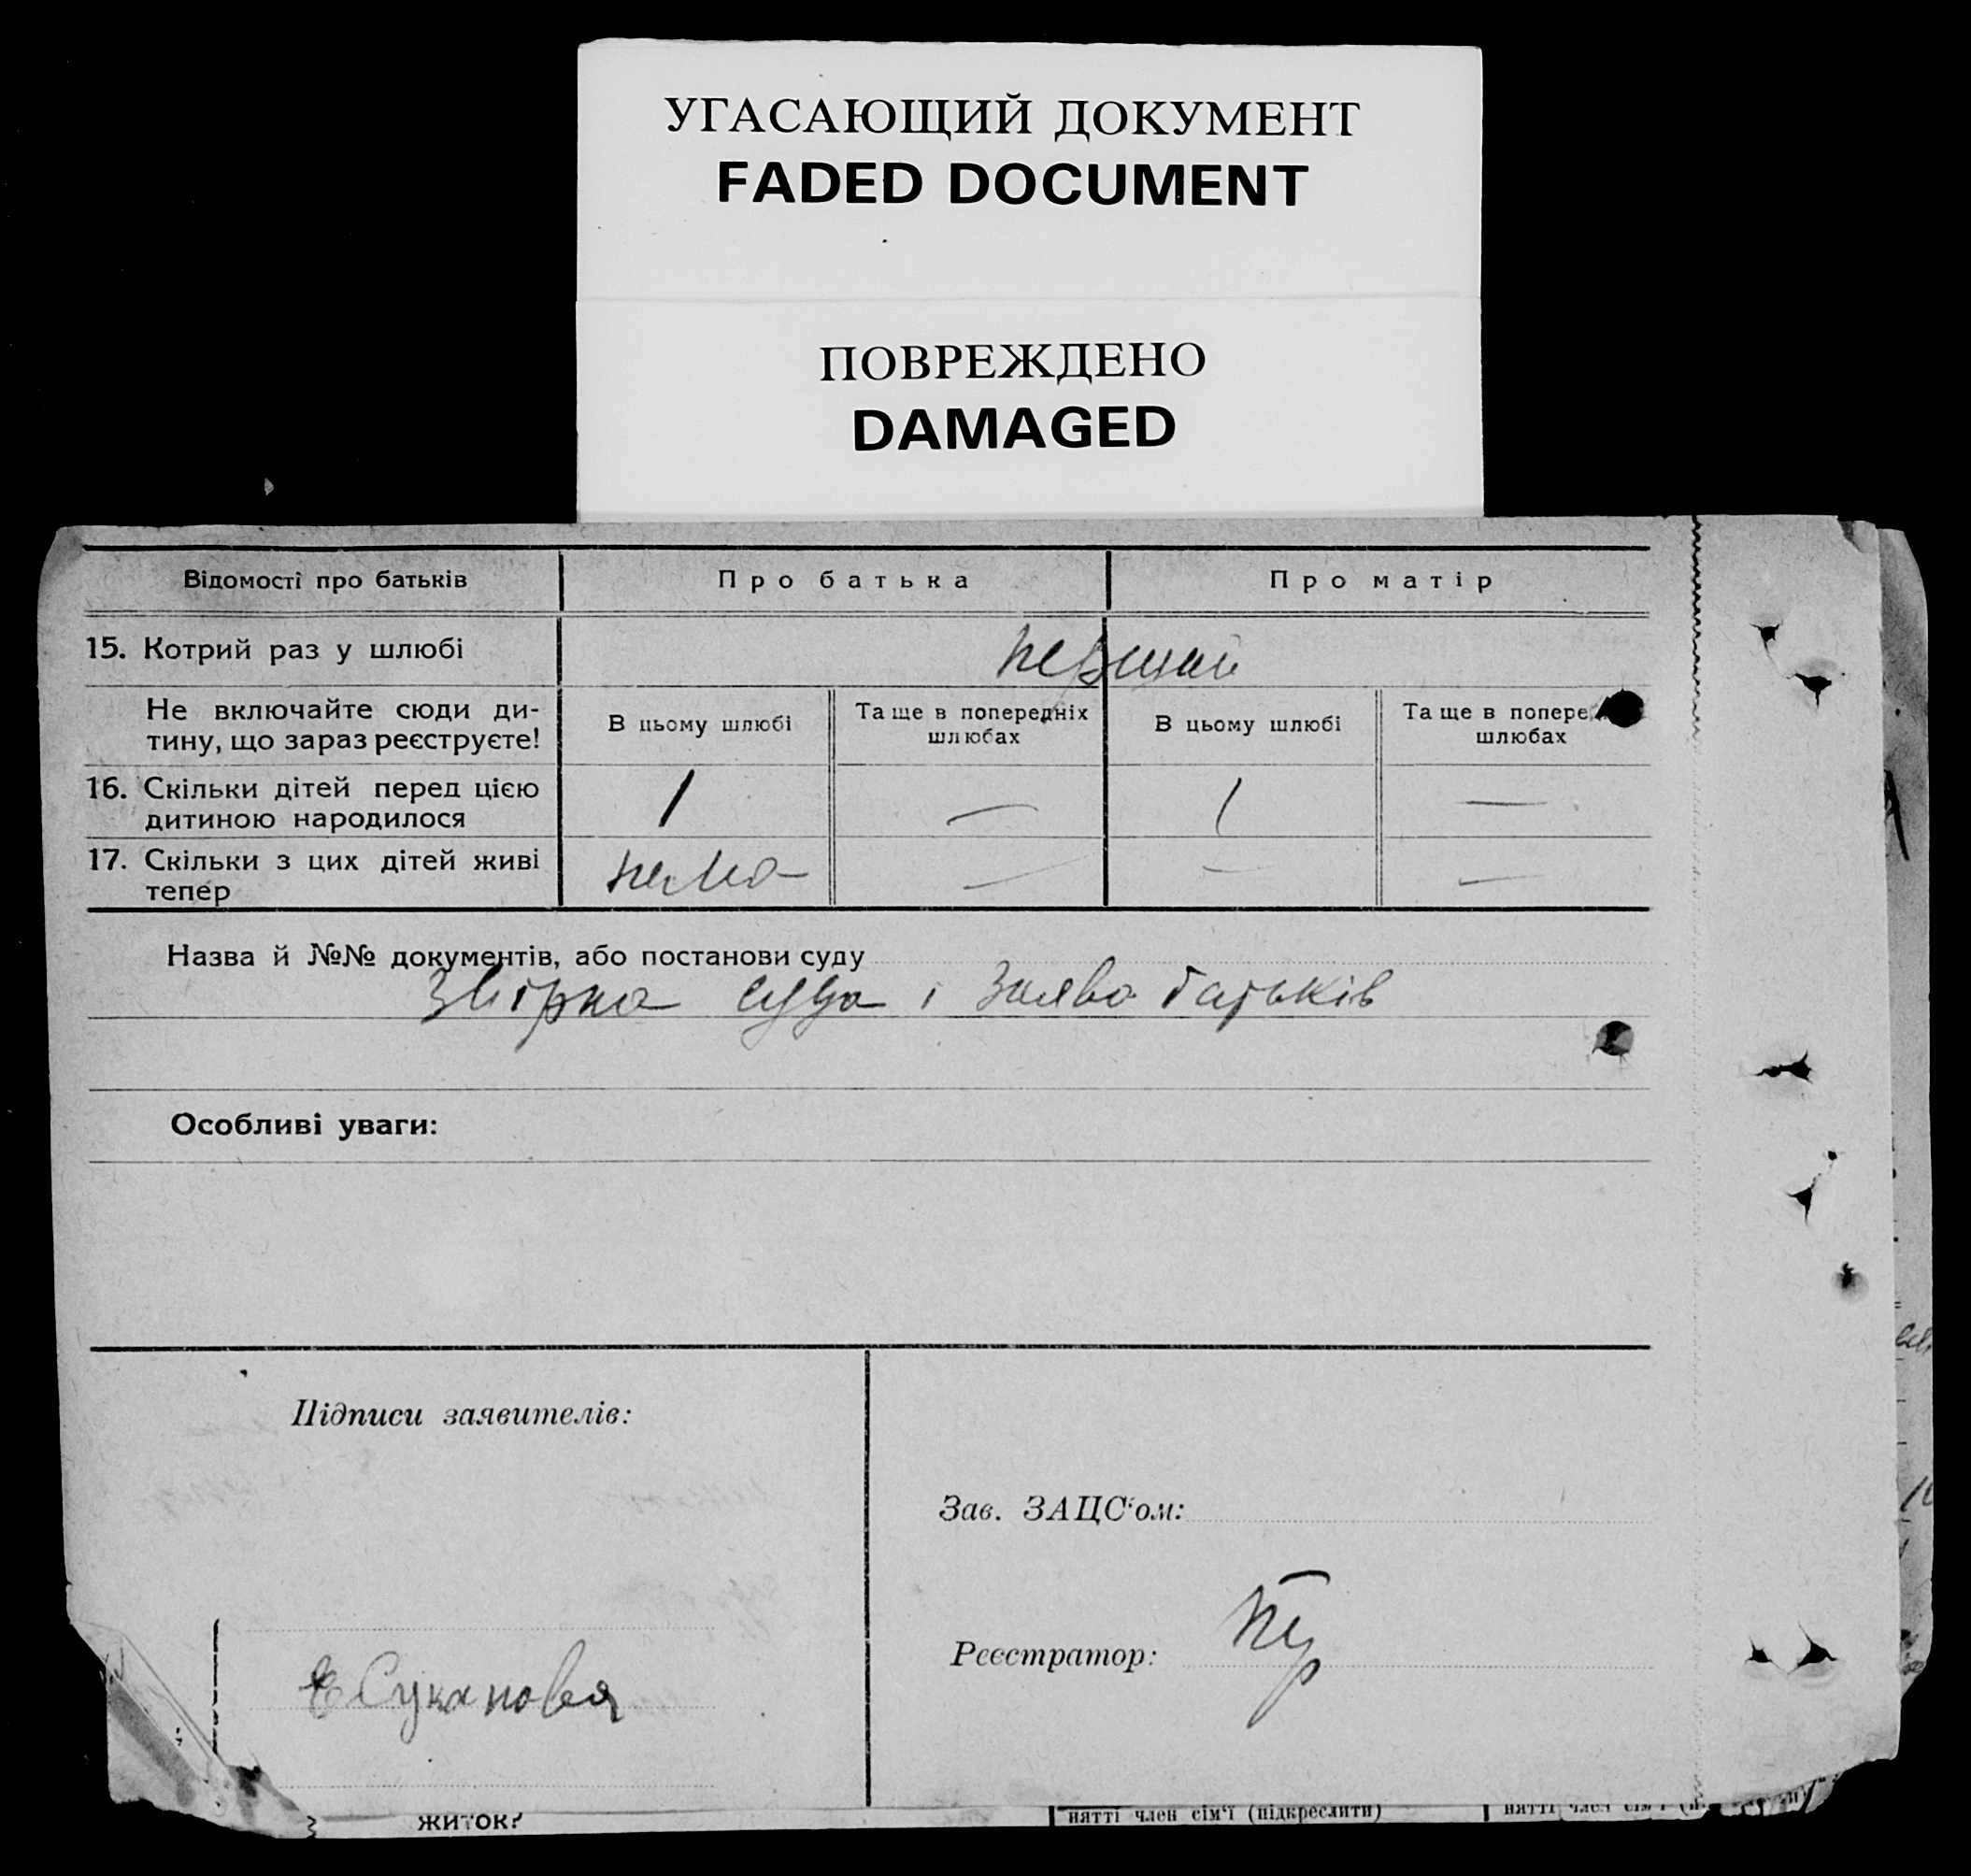 УГАСАЮЩИЙ ДОКУМЕНТ
FADED DOCUMENT
ПОВРЕЖДЕНО
DAMAGED
Відомості про батьків Про батька Про матір
15. Котрий раз у шлюбі перший
Не включайте сюди ди-
тину, що зараз реєструєте!
В цьому шлюбі
Та ще в попередніх
шлюбах
В цьому шлюбі
Та ще в попере
шлюбах
16. Скільки дітей перед цією
дитиною народилося
1 — 1 —
17. Скільки з цих дітей живі
тепер
нема — — —
Назва й №№ документів, або постанови суду
і заява батьків
Особливі уваги:
Підписи заявителів:
Зав. ЗАЦС'ом:
Реєстратор:
Е Суханова
житок?
нятті член сім'ї (підкреслити)